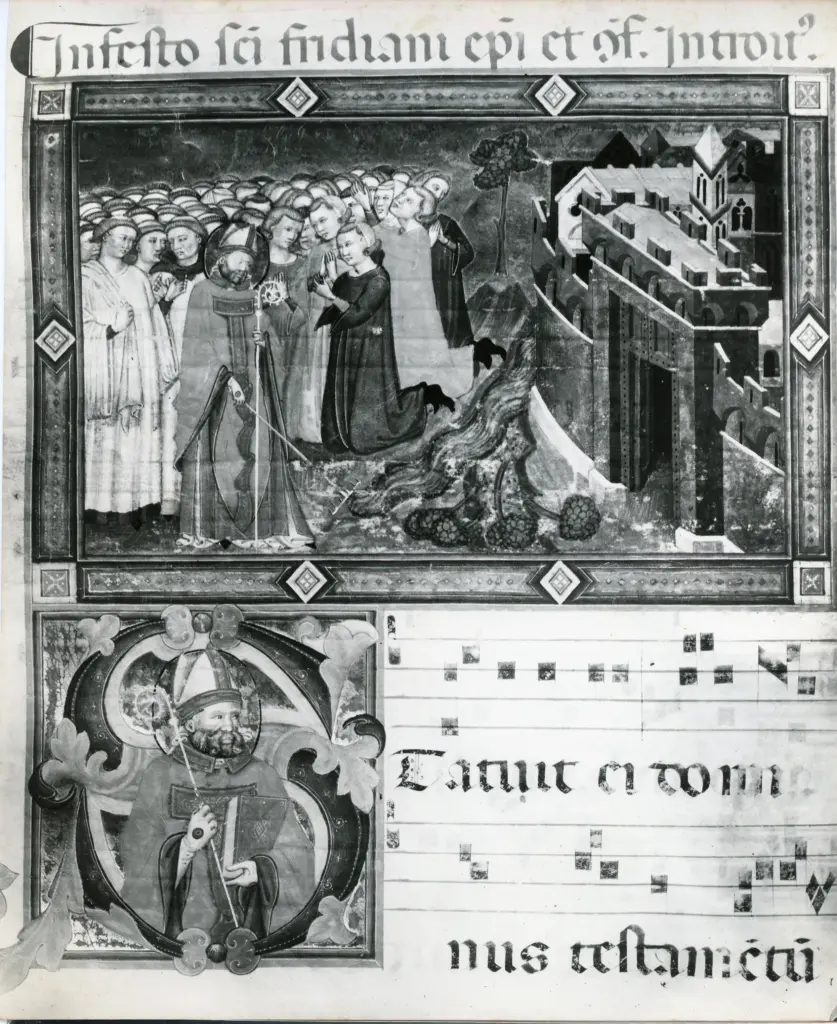 In festo sci fridiani epi et ꝯf. Introit⁹.
Tatuit ei domi
nus testamētū